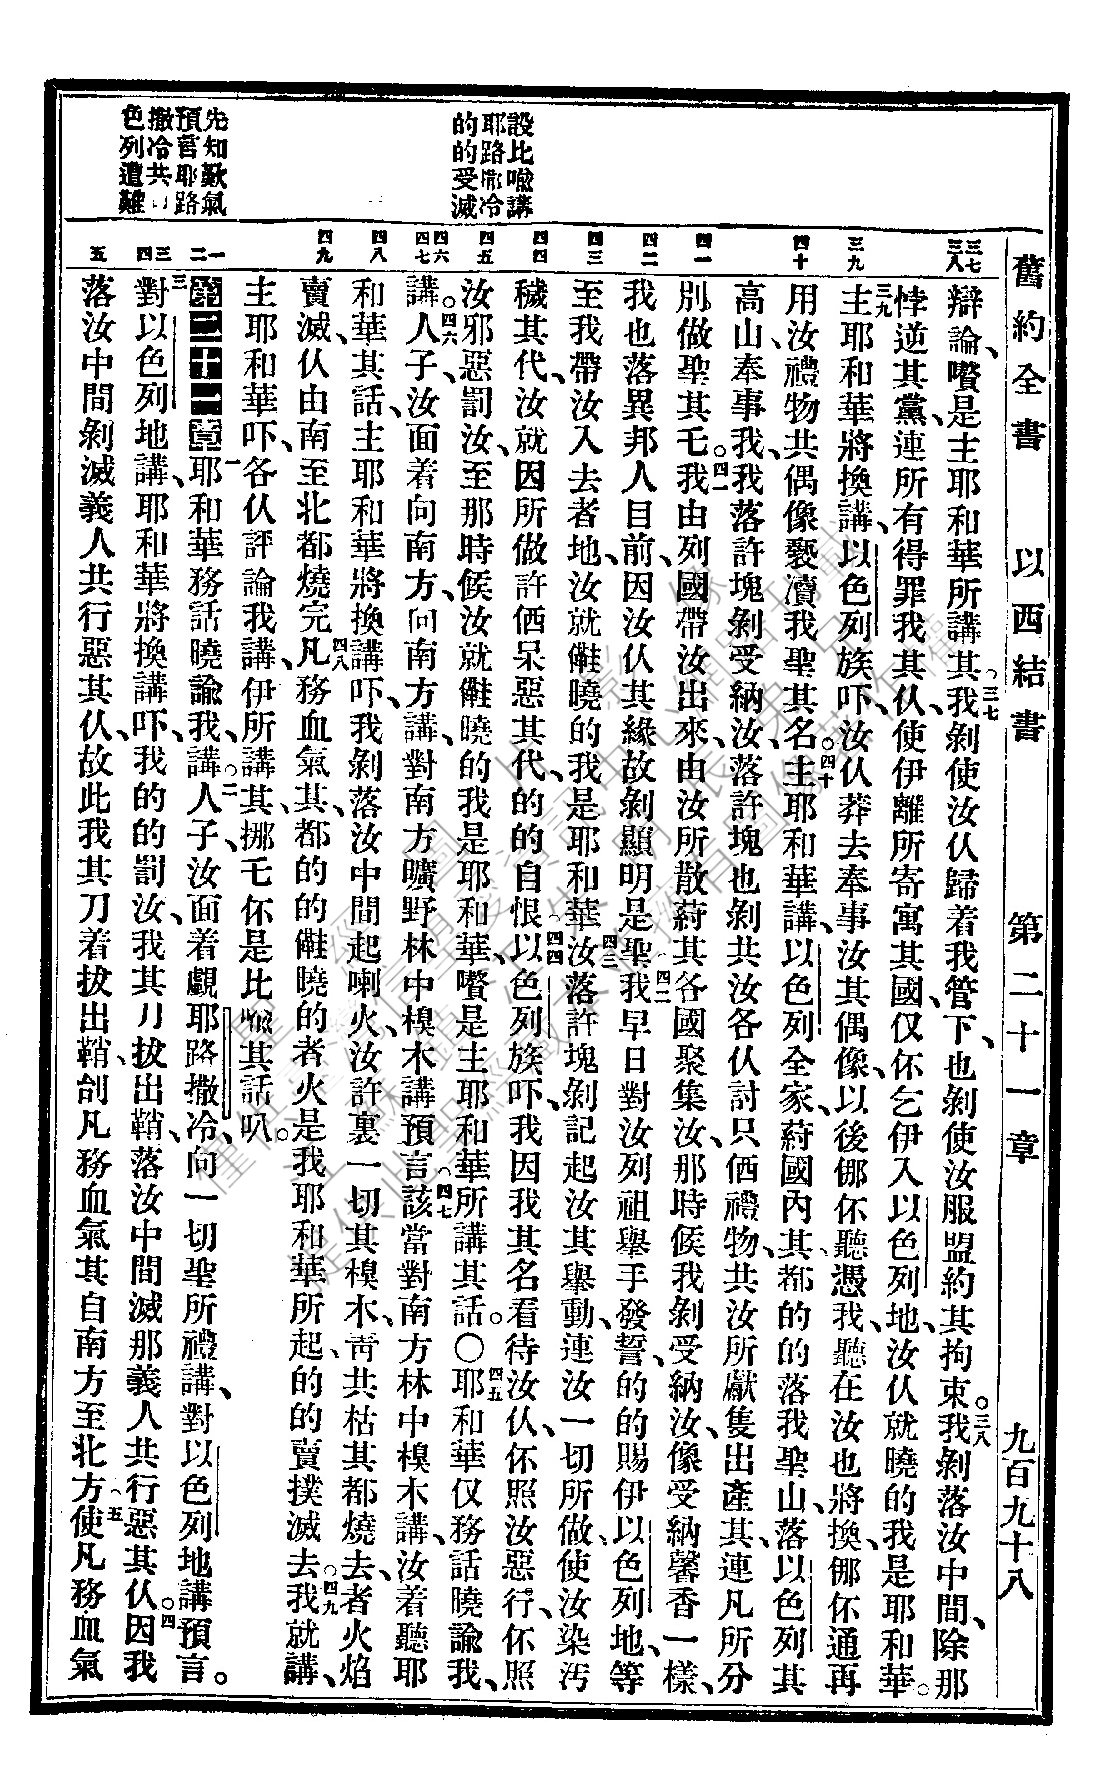 舊約全書　以西結書　第二十一章　九百九十八
設比喻講
耶路撒冷
的的受滅
先知歎氣
預言耶路
撒冷共以
色列遭難
三七
三八
三九
四十
四一
四二
四三
四四
四五
四六
四七
四八
四九
一
二
三
四
五
辯論、嚽是主耶和華所講其。三七我剝使汝仈歸着我管下、也剝使汝服盟約其拘束。三八我剝落汝中間、除那
悖逆其黨、連所有得罪我其仈、使伊離所寄寓其國、仅伓乞伊入以色列地、汝仈就曉的我是耶和華。
三九主耶和華將換講、以色列族吓、汝仈莽去奉事汝其偶像、以後㑚伓聽憑我、聽在汝也將換、㑚伓通再
用汝禮物共偶像褻瀆我聖其名。四十主耶和華講、以色列全家、蒔國內其、都的的落我聖山、落以色列其
高山奉事我、我落許塊剝受納汝、落許塊也剝共汝各仈討只㑻禮物、共汝所獻隻出產其、連凡所分
別做聖其乇。四一我由列國帶汝出來、由汝所散蒔其各國聚集汝、那時候我剝受納汝、像受納馨香一樣、
我也落異邦人目前、因汝仈其緣故剝顯明是聖。四二我早日對汝列祖舉手發誓、的的賜伊以色列地、等
至我帶汝入去者地、汝就㑓曉的我是耶和華。四三汝落許塊、剝記起汝其舉動、連汝一切所做、使汝染汚
穢其代、汝就因所做許㑻呆惡其代、的的自恨。四四以色列族吓、我因我其名看待汝仈、伓照汝惡行、伓照
汝邪惡罰汝、至那時候汝就㑓曉的我是耶和華、嚽是主耶和華所講其話。○四五耶和華仅務話曉諭我、
講。四六人子、汝面着向南方、向南方講、對南方曠野林中樹木講預言。四七該當對南方林中樹木講、汝着聽耶
和華其話、主耶和華將換講吓、我剝落汝中間起喇火、汝許裏一切其樹木、靑共枯其都燒去、者火焰
賣滅、仈由南至北都燒完。四八凡務血氣其、都的的㑓曉的者火是我耶和華所起、的的賣撲滅去。四九我就講、
主耶和華吓、各仈評論我講、伊所講其、挪乇伓是比喻其話叭。
第二十一章一耶和華務話曉諭我、講。二人子、汝面着覷耶路撒冷、向一切聖所禮講、對以色列地講預言。
三對以色列地講、耶和華將換講吓、我的的罰汝、我其刀拔出鞘、落汝中間滅那義人共行惡其仈。四因我
落汝中間剝滅義人共行惡其仈、故此我其刀着拔出鞘、刣凡務血氣其、自南方至北方。五使凡務血氣